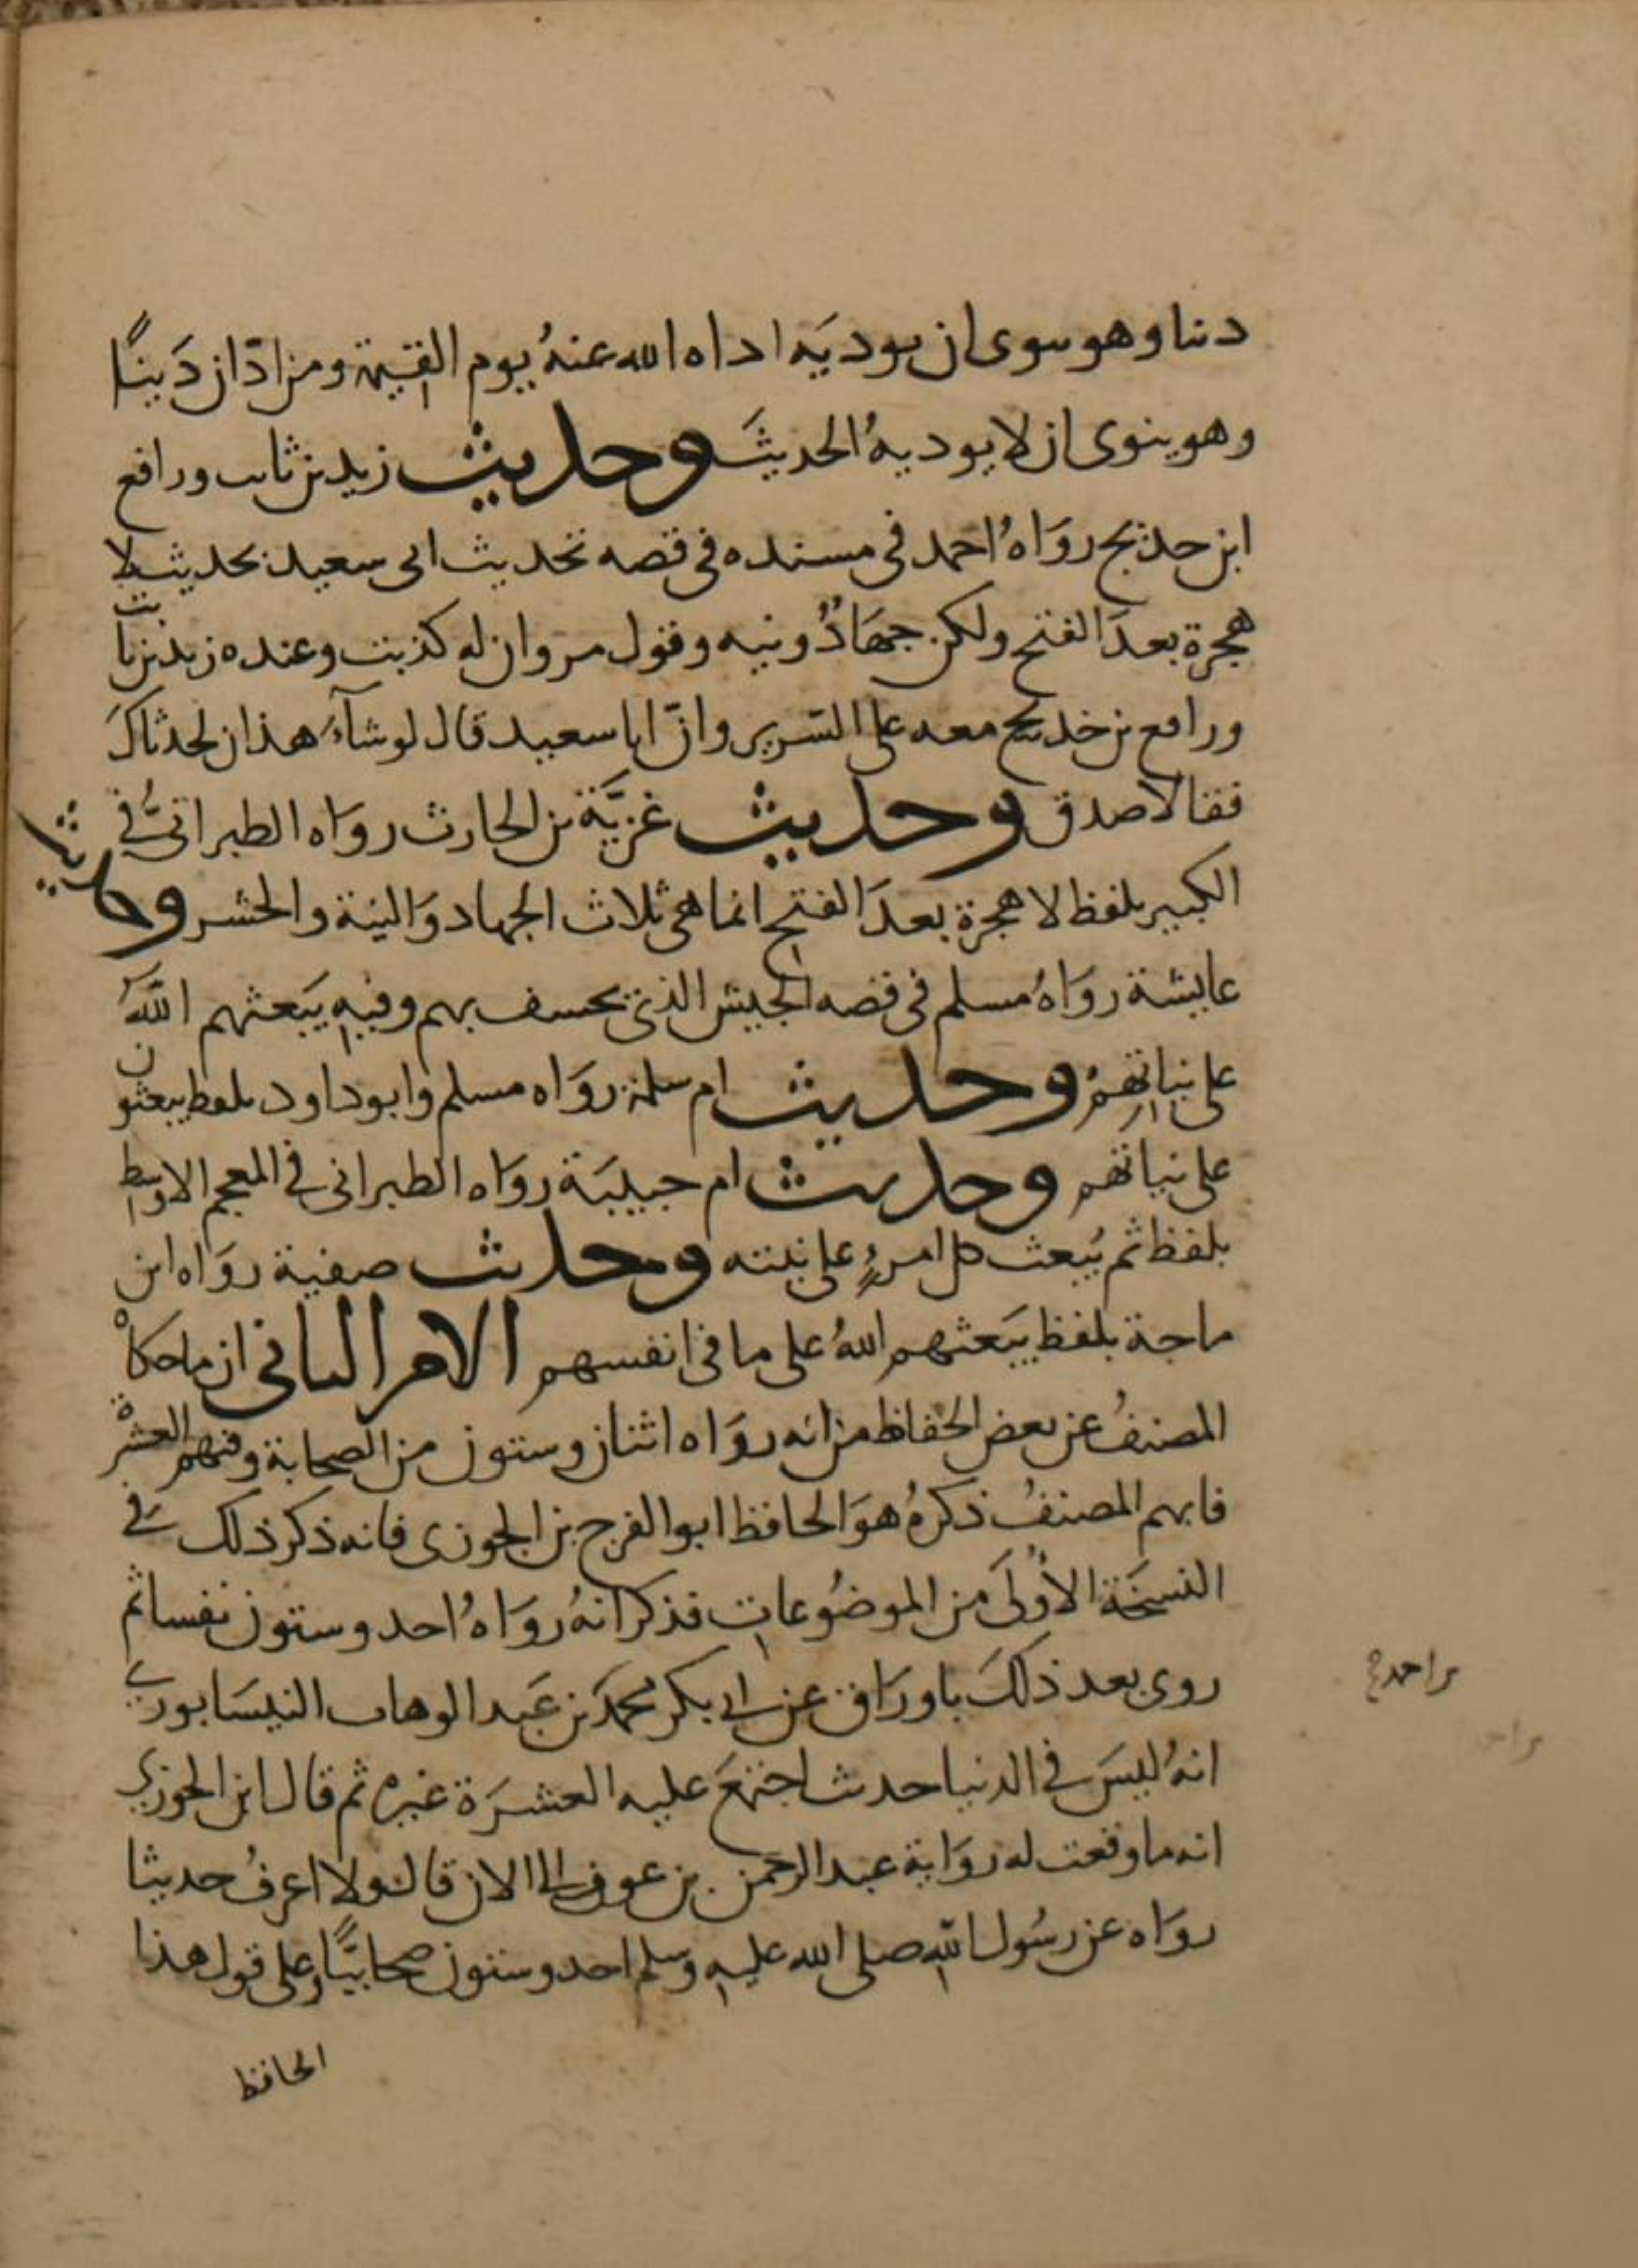 دينا وهو ينوي ان يوديَه اداه الله عنهُ يوم القيمة ومن ادّان دَينًا
وهو ينوي ان لا يوديهُ الحديثَ وحديث زيد بن ثابت ورافع
ابن خديج روَاهُ احمد في مسنده في قصه تحديث ابي سعيد بحديث لا
هجرة بعدَ الفتح ولكن جهَادٌ ونيه وقول مروان له كذبت وعنده زيد بن ثابت
ورافع بن خديج معه على السّرير وانّ ابا سعيد قال لو شآء هذان لحدثاكَ
فقالا صدق وحديث غزيَّة بن الحارث روَاه الطبرانيُّ في
الكبير بلفظ لا هجرة بعدَ الفتح انما هي ثلاث الجهاد وَالنية والحشر وحديث
عايشة روَاهُ مسلم في قصه الجيش الذي يخسف بهم وفيهِ يبَعثهم اللَّهُ
على نياتِهمْ وحديث ام سلمة روَاه مسلم وابو داود بلفظ يبعثون
على نياتهم وحديث ام حبيبَة روَاه الطبراني في المعجم الاوسط
بلفظ ثم يُبعث كل امرءٍ على نيته وحديث صفية روَاه ابن
ماجة بلفظ يبَعثهم اللهُ على ما في انفسهم الامر الثاني ان ما حكاهُ
المصنفُ عن بعض الحفاظ من انه روَاه اثنان وستون من الصحابة وفيهم العشرةْ
فابهم المصنفُ ذكرهُ هوَ الحافظ ابو الفرج بن الجوزي فانه ذكر ذلك في
النسخَة الأُولَى من الموضُوعات فذكر انهُ روَاهُ احد وستون نفسا ثم
روى بعد ذلكَ باورَاق عن ابي بكر محمَد بن عَبد الوهاب النيسَابوري
انهُ ليسَ في الدنيا حديث اجتمعَ عليه العشَرَة غيره ثم قال ابن الجوزي
انه ما وقعت له روَاية عبد الرحمن بن عوف الى الان قال ولا اعرفُ حديثا
روَاه عن رسُول اللّهِ صلى الله عليهِ وسلم احد وستون صحابيًّا وعلى قول هذا
الحافظ